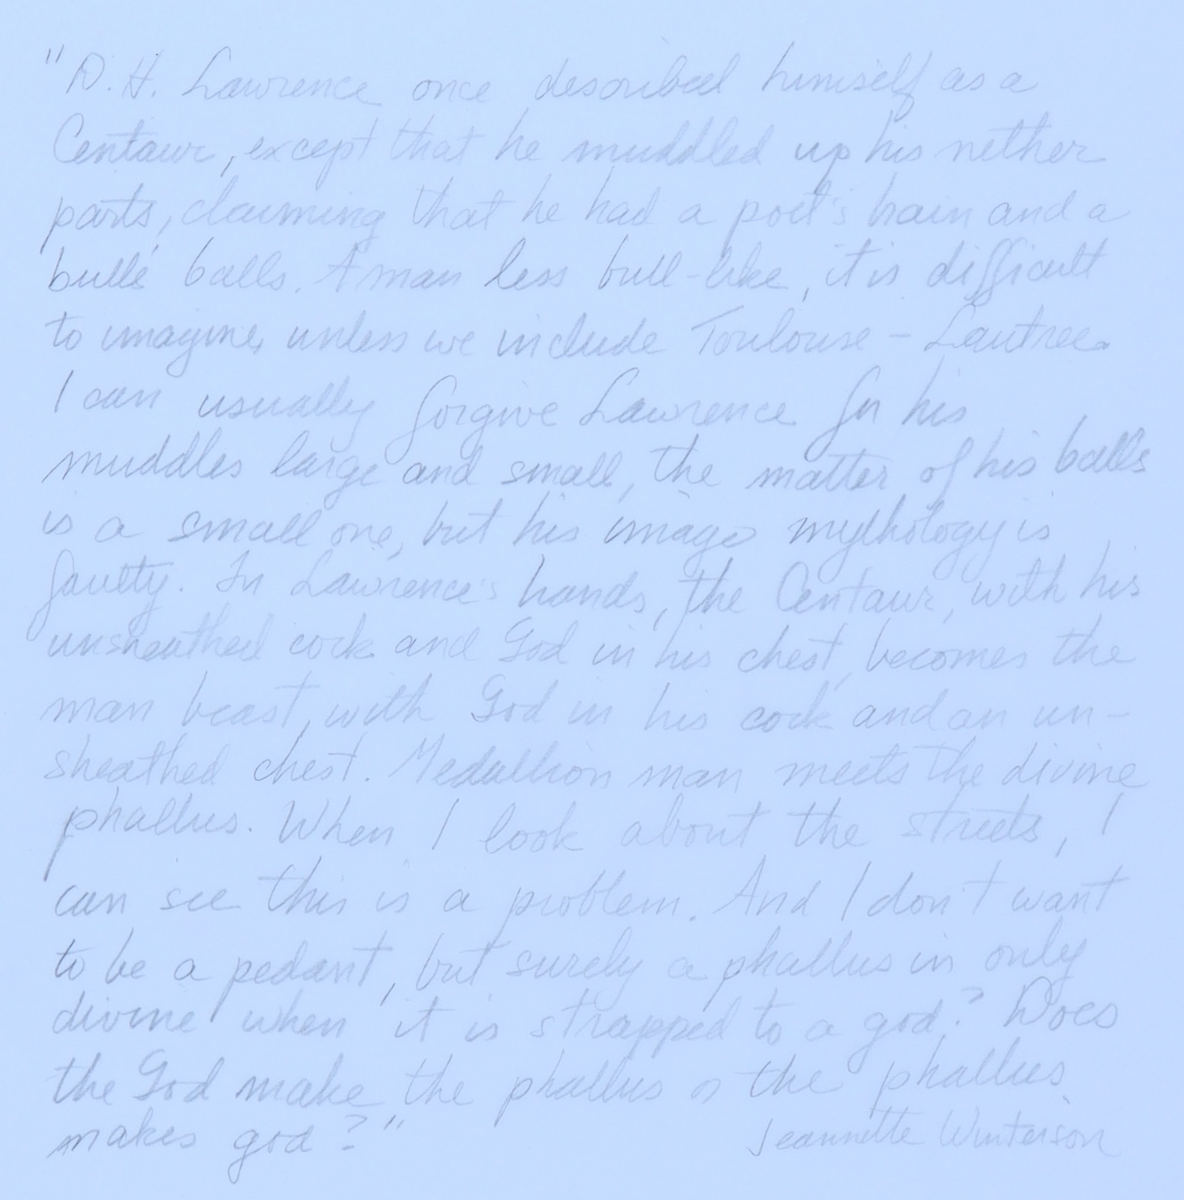 "D. H. Lawrence once described himself as a
Centaur, except that he muddled up his nether
parts, claiming that he had a poet's brain and a
bulls' balls. A man less bull-like, it is difficult
to imagine, unless we include Toulouse - Lautrec.
I can usually forgive Lawrence for his
muddles large and small, the matter of his balls
is a small one, but his imago mythology is
faulty. In Lawrence's hands, the Centaur, with his
unsheathed cock and God in his chest, becomes the
man beast, with God in his cock and an un-
sheathed chest. Medallion man meets the divine
phallus. When I look about the streets, I
can see this is a problem. And I don't want
to be a pedant, but surely a phallus in only
divine when it is strapped to a god? Does
the God make the phallus or the phallus
makes god?"
Jeannette Winterson